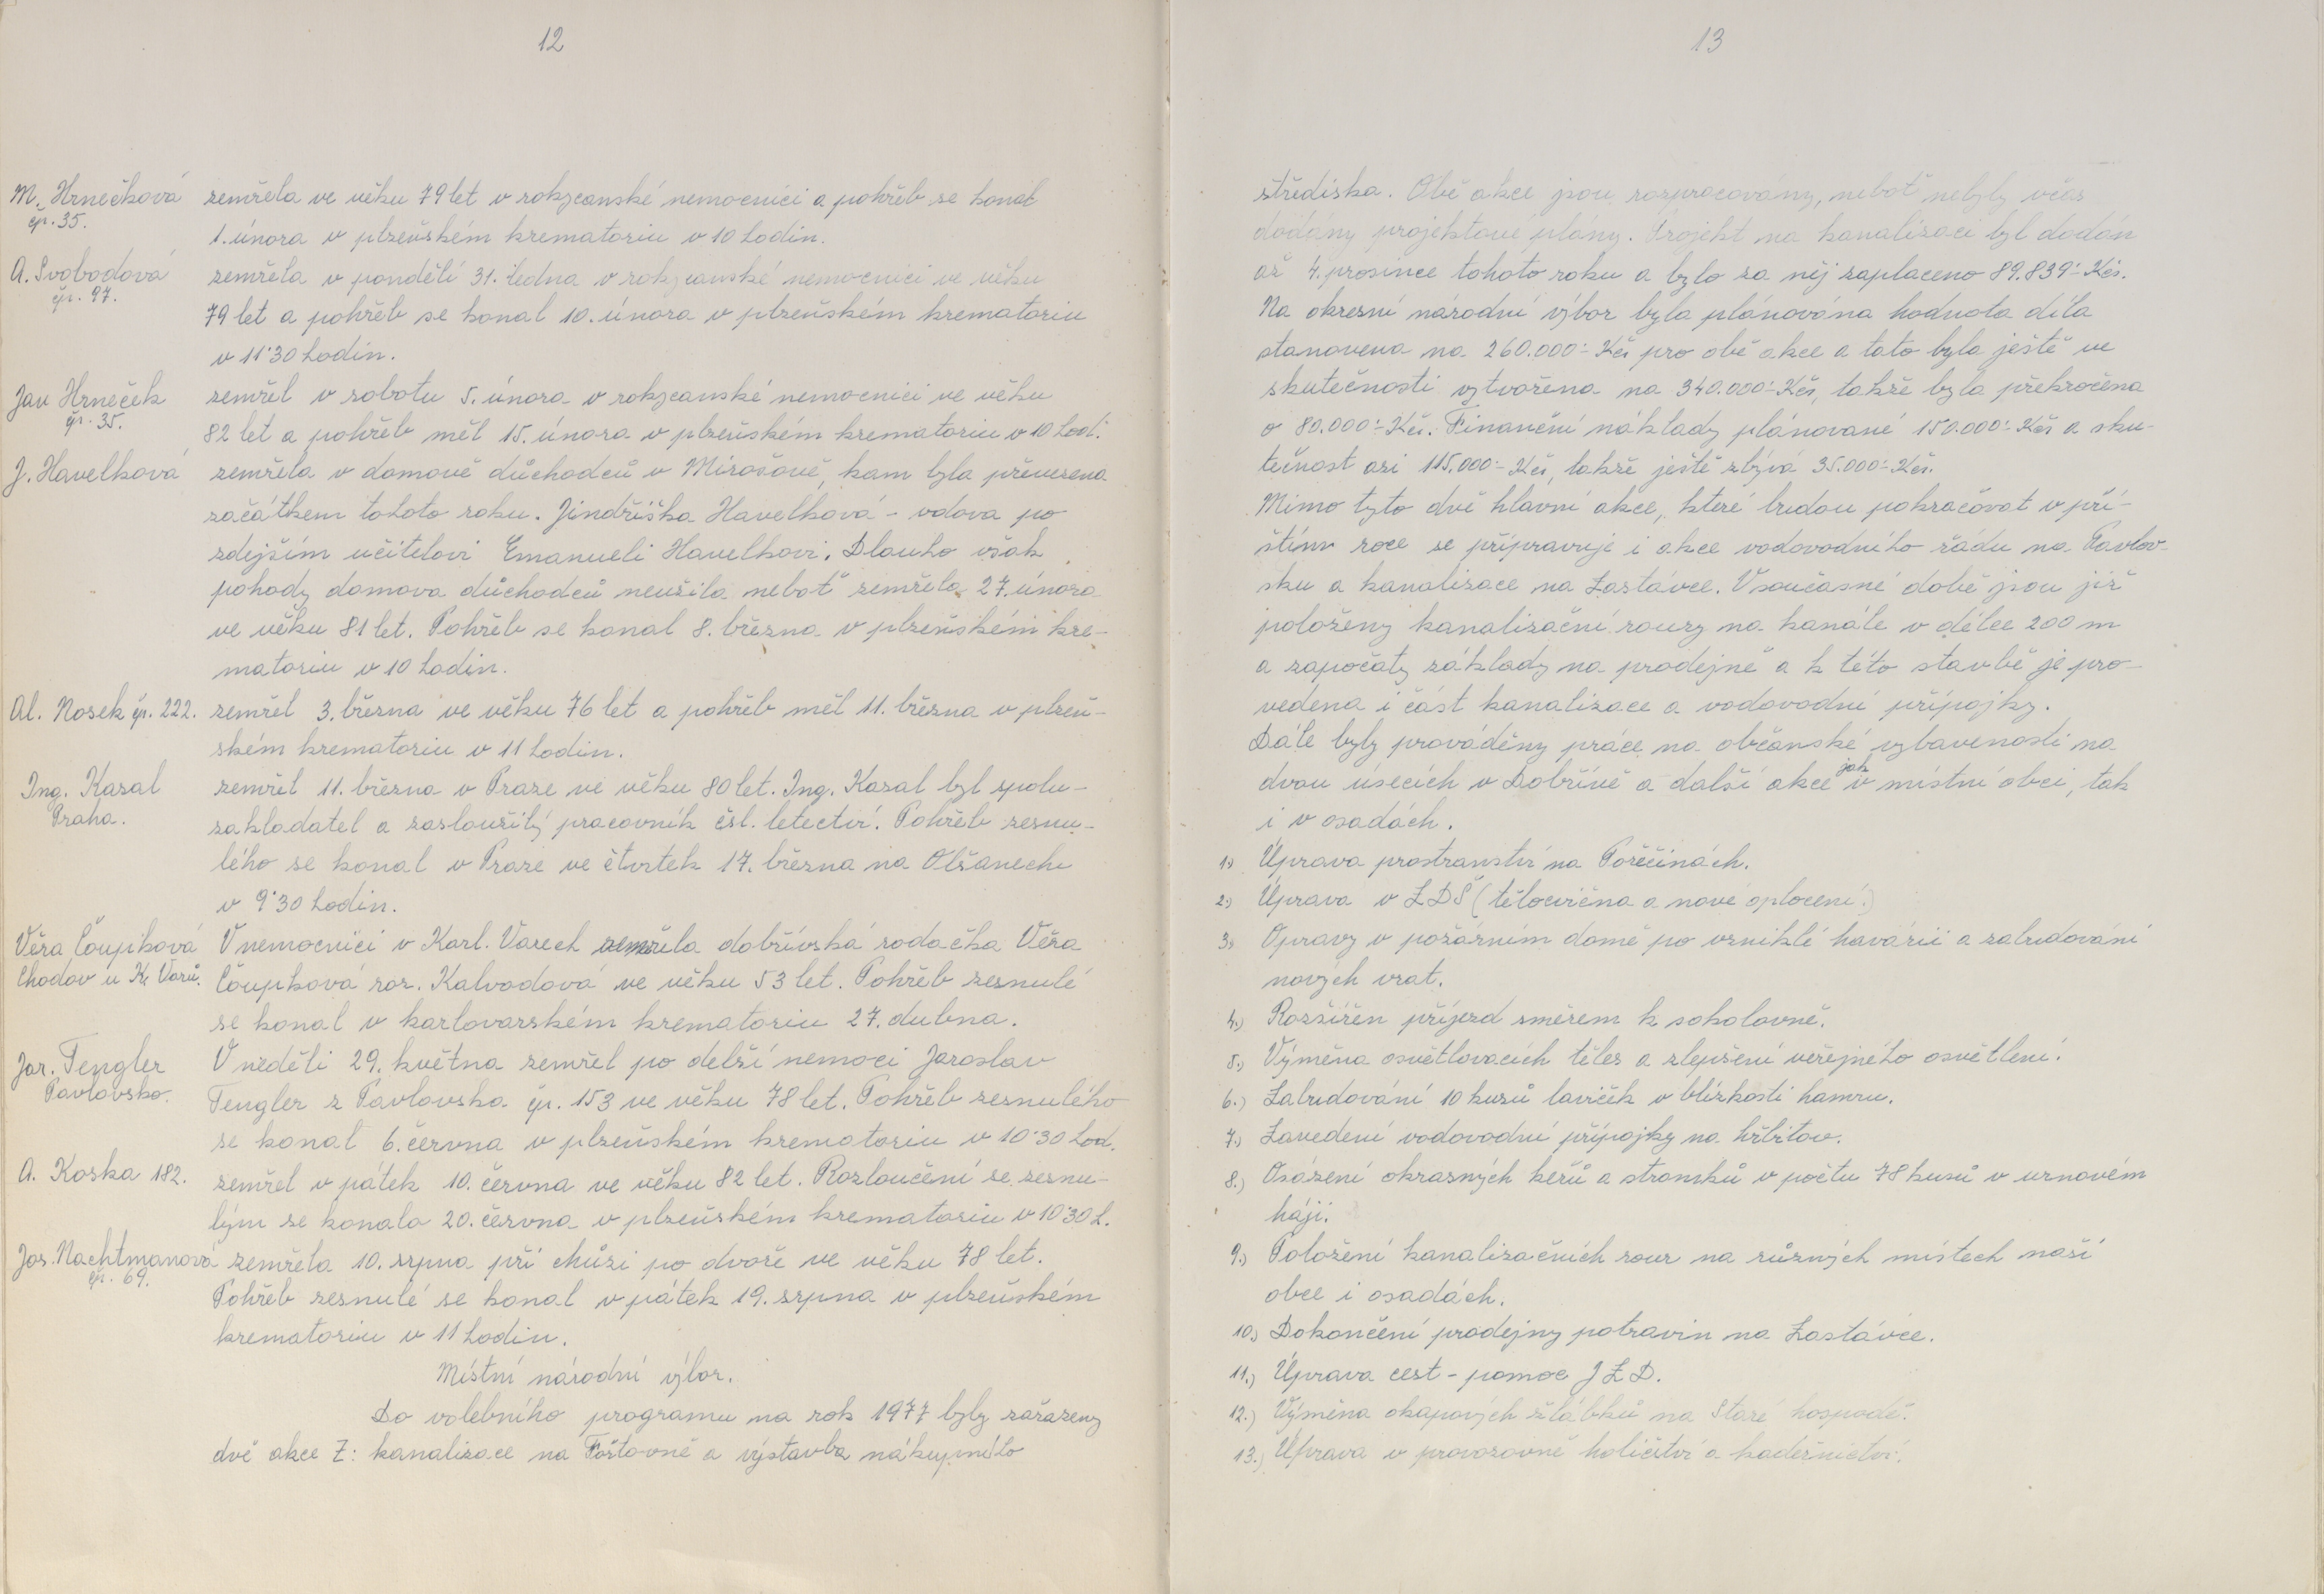 12
M. Hrnečková
čp. 35.
zemřela ve věku 79 let v rokycanské nemocnici a pohřeb se konal
1. února v plzeňském krematoriu v 10 hodin.
A. Svobodová
čp. 97.
zemřela v pondělí 31. ledna v rokycanské nemocnici ve věku
79 let a pohřeb se konal 10. února v plzeňském krematoriu
v 11˙30 hodin.
Jan Hrneček
čp. 35.
zemřel v sobotu 5. února v rokycanské nemocnici ve věku
82 let a pohřeb měl 15. února v plzeňském krematoriu v 10 hod.
J. Havelková
zemřela v domově důchodců v Mirošově, kam byla převezena
začátkem tohoto roku. Jindřiška Havelková - vdova po
zdejším učitelovi Emanueli Havelkovi. Dlouho však
pohody domova důchodců neužila neboť zemřela 27. února
ve věku 81 let. Pohřeb se konal 8. března v plzeňském kre-
matoriu v 10 hodin.
Al. Nosek čp. 222.
zemřel 3. března ve věku 76 let a pohřeb měl 11. března v plzeň-
ském krematoriu v 11 hodin.
Ing. Kazal
Praha.
zemřel 11. března v Praze ve věku 80 let. Ing. Kazal byl spolu-
zakladatel a zasloužilý pracovník čsl. letectví. Pohřeb zesnu-
lého se konal v Praze ve čtvrtek 17. března na Olšanech
v 9˙30 hodin.
Věra Čoupková
Chodov u K. Varů.
V nemocnici v Karl. Varech zemřela dobřívská rodačka Věra
Čoupková roz. Kalvodová ve věku 53 let. Pohřeb zesnulé
se konal v karlovarském krematoriu 27. dubna.
Jar. Tengler
Pavlovsko.
V neděli 29. května zemřel po delší nemoci Jaroslav
Tengler z Pavlovska čp. 153 ve věku 78 let. Pohřeb zesnulého
se konal 6. června v plzeňském krematoriu v 10˙30 hod.
A. Koska 182.
zemřel v pátek 10. června ve věku 82 let. Rozloučení se zesnu-
lým se konalo 20. června v plzeňském krematoriu v 10˙30 h.
Jos. Nachtmanová
čp. 69.
zemřela 10. srpna při chůzi po dvoře ve věku 78 let.
Pohřeb zesnulé se konal v pátek 19. srpna v plzeňském
krematoriu v 11 hodin.
Místní národní výbor.
Do volebního programu na rok 1977 byly zařazeny
dvě akce Z: kanalizace na Foštovně a výstavba nákupního
13
střediska. Obě akce jsou rozpracovány, neboť nebyly včas
dodány projektové plány. Projekt na kanalizaci byl dodán
až 7. prosince tohoto roku a bylo za něj zaplaceno 89.839˙- Kčs.
Na okresní národní výbor byla plánována hodnota díla
stanovena na 260.000˙- Kčs pro obě akce a tato byla ještě ve
skutečnosti vytvořena na 340.000˙- Kčs, takže byla překročena
o 80.000˙- Kčs. Finanční náklady plánované 150.000˙- Kčs a sku-
tečnost asi 115.000˙- Kčs, takže ještě zbývá 35.000˙- Kčs.
Mimo tyto dvě hlavní akce, které budou pokračovat v pří-
štím roce se připravuje i akce vodovodního řádu na Pavlov-
sku a kanalizace na Zastávce. V současné době jsou již
položeny kanalizační roury na kanále v délce 200 m
a započaty základy na prodejně a k této stavbě je pro-
vedena i část kanalizace a vodovodní přípojky.
Dále byly prováděny práce na občanské vybavenosti na
dvou úsecích v Dobřívě a další akce jak v místní obci, tak
i v osadách.
1.) Úprava prostranství na Pořičinách.
2.) Úprava v ZDŠ (tělocvična a nové oplocení.)
3.) Opravy v požárním domě po vzniklé havárii a zabudování
nových vrat.
4.) Rozšířen příjezd směrem k sokolovně.
5.) Výměna osvětlovacích těles a zlepšení veřejného osvětlení.
6.) Zabudování 10 kusů laviček v blízkosti hamru.
7.) Zavedení vodovodní přípojky na hřbitov.
8.) Osázení okrasných keřů a stromků v počtu 78 kusů v urnovém
háji.
9.) Položení kanalizačních rour na různých místech naší
obce i osadách.
10.) Dokončení prodejny potravin na Zastávce.
11.) Úprava cest - pomoc JZD.
12.) Výměna okapových žlábků na Staré hospodě.
13.) Úprava v provozovně holičství a kadeřnictví.